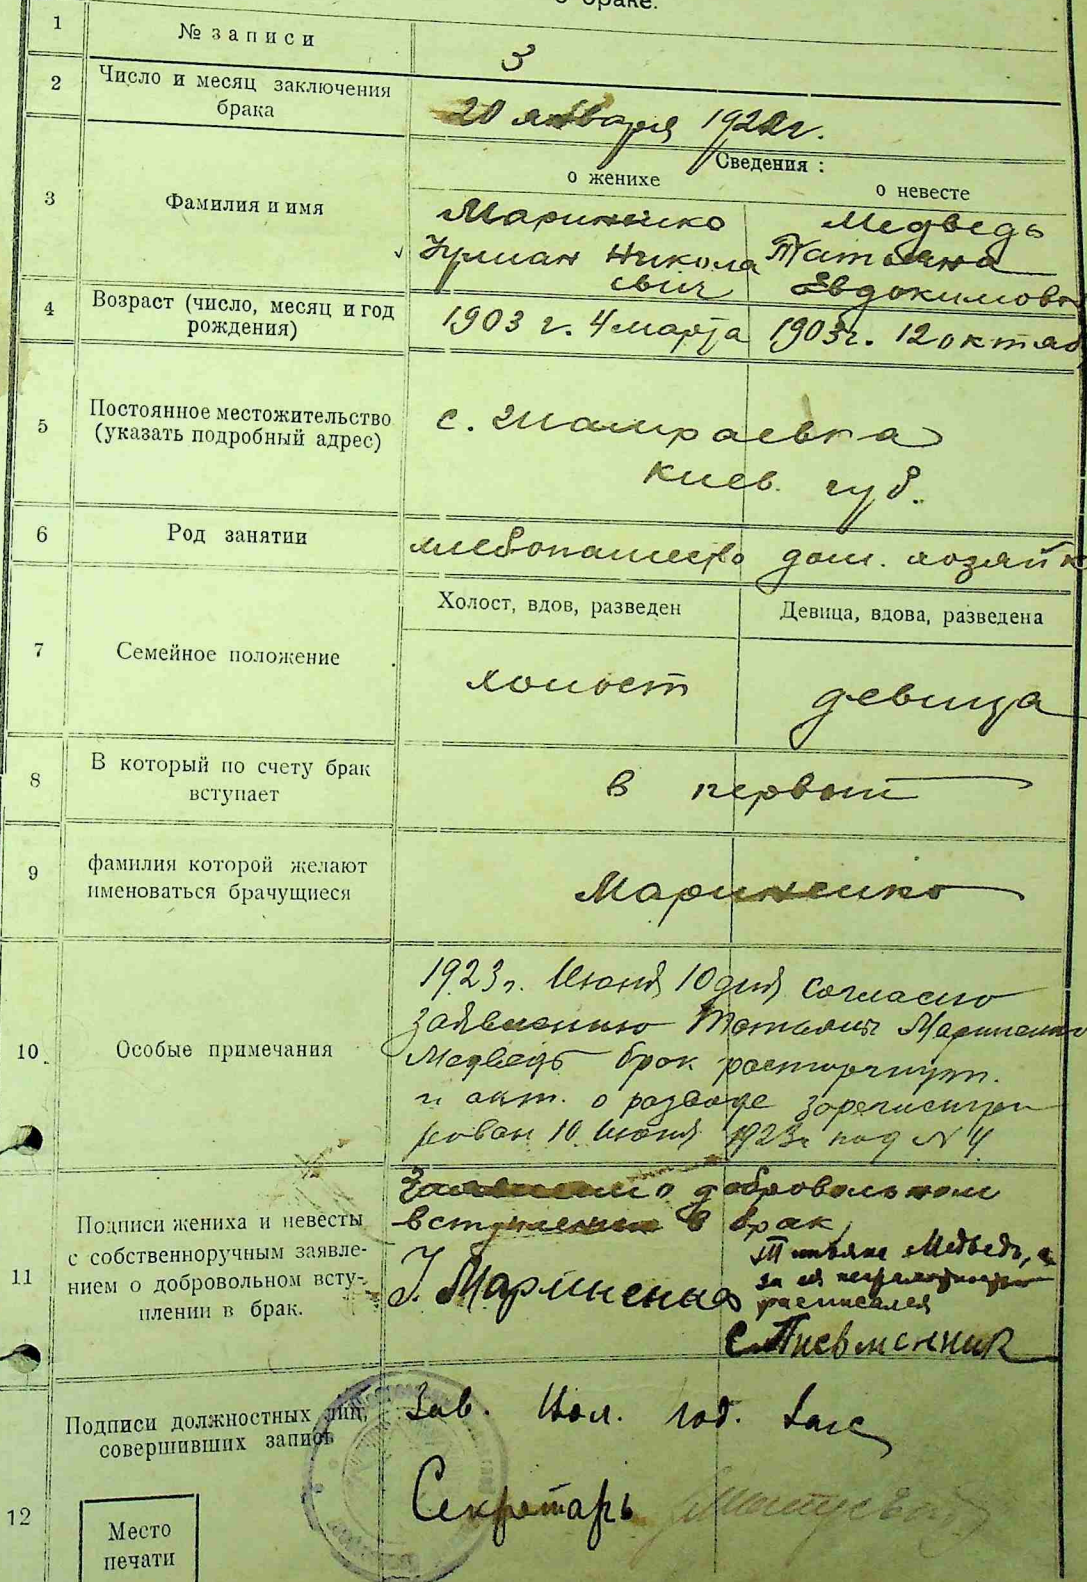 о браке.
1 № записи 3
2 Число и месяц заключения
брака
20 января 192 г.
Сведения :
о женихе о невесте
3 Фамилия и имя
Мариненко Медведь
Иулиан Никола Татьяна
евич Евдокимовн
4 Возраст (число, месяц и год
рождения)
1903 г. 4 марта 1903 г. 12 октяб
5 Постоянное местожительство
(указать подробный адрес)
с. Шамраевка
Киев. губ.
6 Род занятии хлебопашество дом. хозяйк
Холост, вдов, разведен Девица, вдова, разведена
7 Семейное положение
холост девица
8 В который по счету брак
вступает
в первый
9 фамилия которой желают
именоваться брачущиеся
Мариненко
10 Особые примечания
1923 г. Июня 10 дня согласно
заявлению Татьяны Мариненко
Медведь брак расторгнут.
и акт. о разводе зарегистри
рован 10 Июня 1923 г. под № 4
11 Подписи жениха и невесты
с собственноручным заявле-
нием о добровольном всту-
плении в брак.
о добровольном
вступлении в брак
И. Мариненко
Татьяна Медведь, а
за ея неграмотност
расписался
С. Письменник
12 Подписи должностных лиц,
совершивших запись
Зав. под. Загс
Секретарь
Место
печати